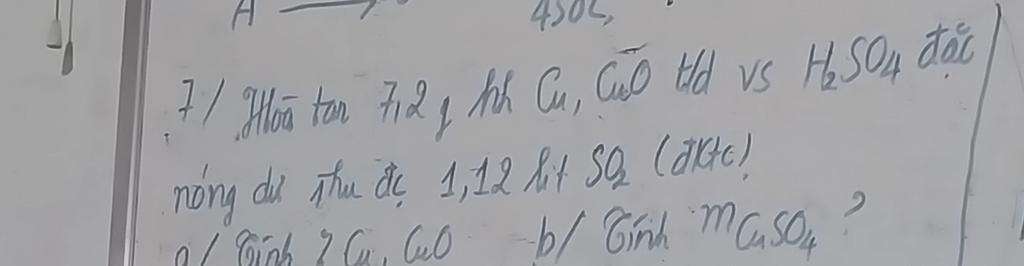 A → 450C,
7/ Hoà tan 7,2 g hh Cu, CuO t/d vs H₂SO₄ đặc
nóng dư thu đc 1,12 lit SO₂ (đktc)
a/ Tính ? Cu, CuO b/ Tính mCuSO₄?